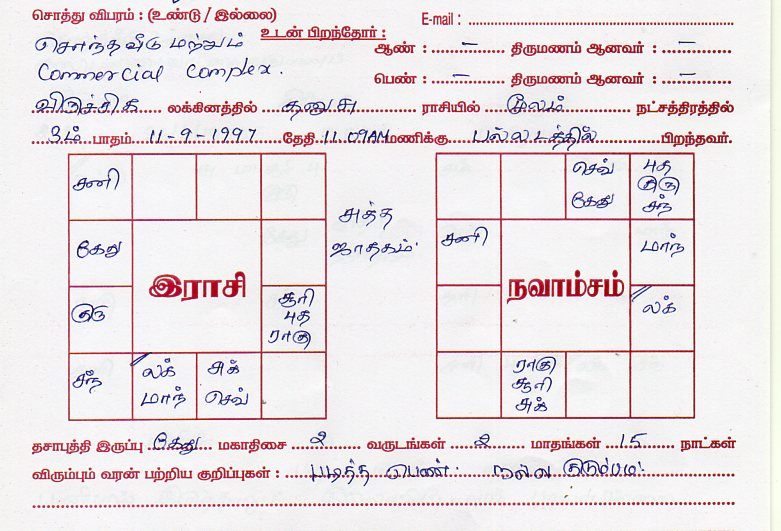 சொத்து விபரம் : (உண்டு / இல்லை) E-mail :
சொந்தவீடு மற்றும் உடன் பிறந்தோர் :
ஆண் : – திருமணம் ஆனவர் : –
Commercial Complex.
பெண் : – திருமணம் ஆனவர் : –
விருச்சிக லக்கினத்தில் தனுசு ராசியில் மூலம் நட்சத்திரத்தில்
3ம் பாதம் 11-9-1997 தேதி 11.09AM மணிக்கு பல்லடத்தில் பிறந்தவர்.
சனி
கேது
குரு
சந்
லக்
மாந்
சுக்
செவ்
சூரி
புத
ராகு
இராசி
சுத்த
ஜாதகம்
செவ்
கேது
புத
குரு
சந்
சனி
மாந்
லக்
ராகு
சூரி
சுக்
நவாம்சம்
தசாபுத்தி இருப்பு கேது மகாதிசை 2 வருடங்கள் 2 மாதங்கள் 15 நாட்கள்
விரும்பும் வரன் பற்றிய குறிப்புகள் : படித்த பெண். நல்ல குடும்பம்.